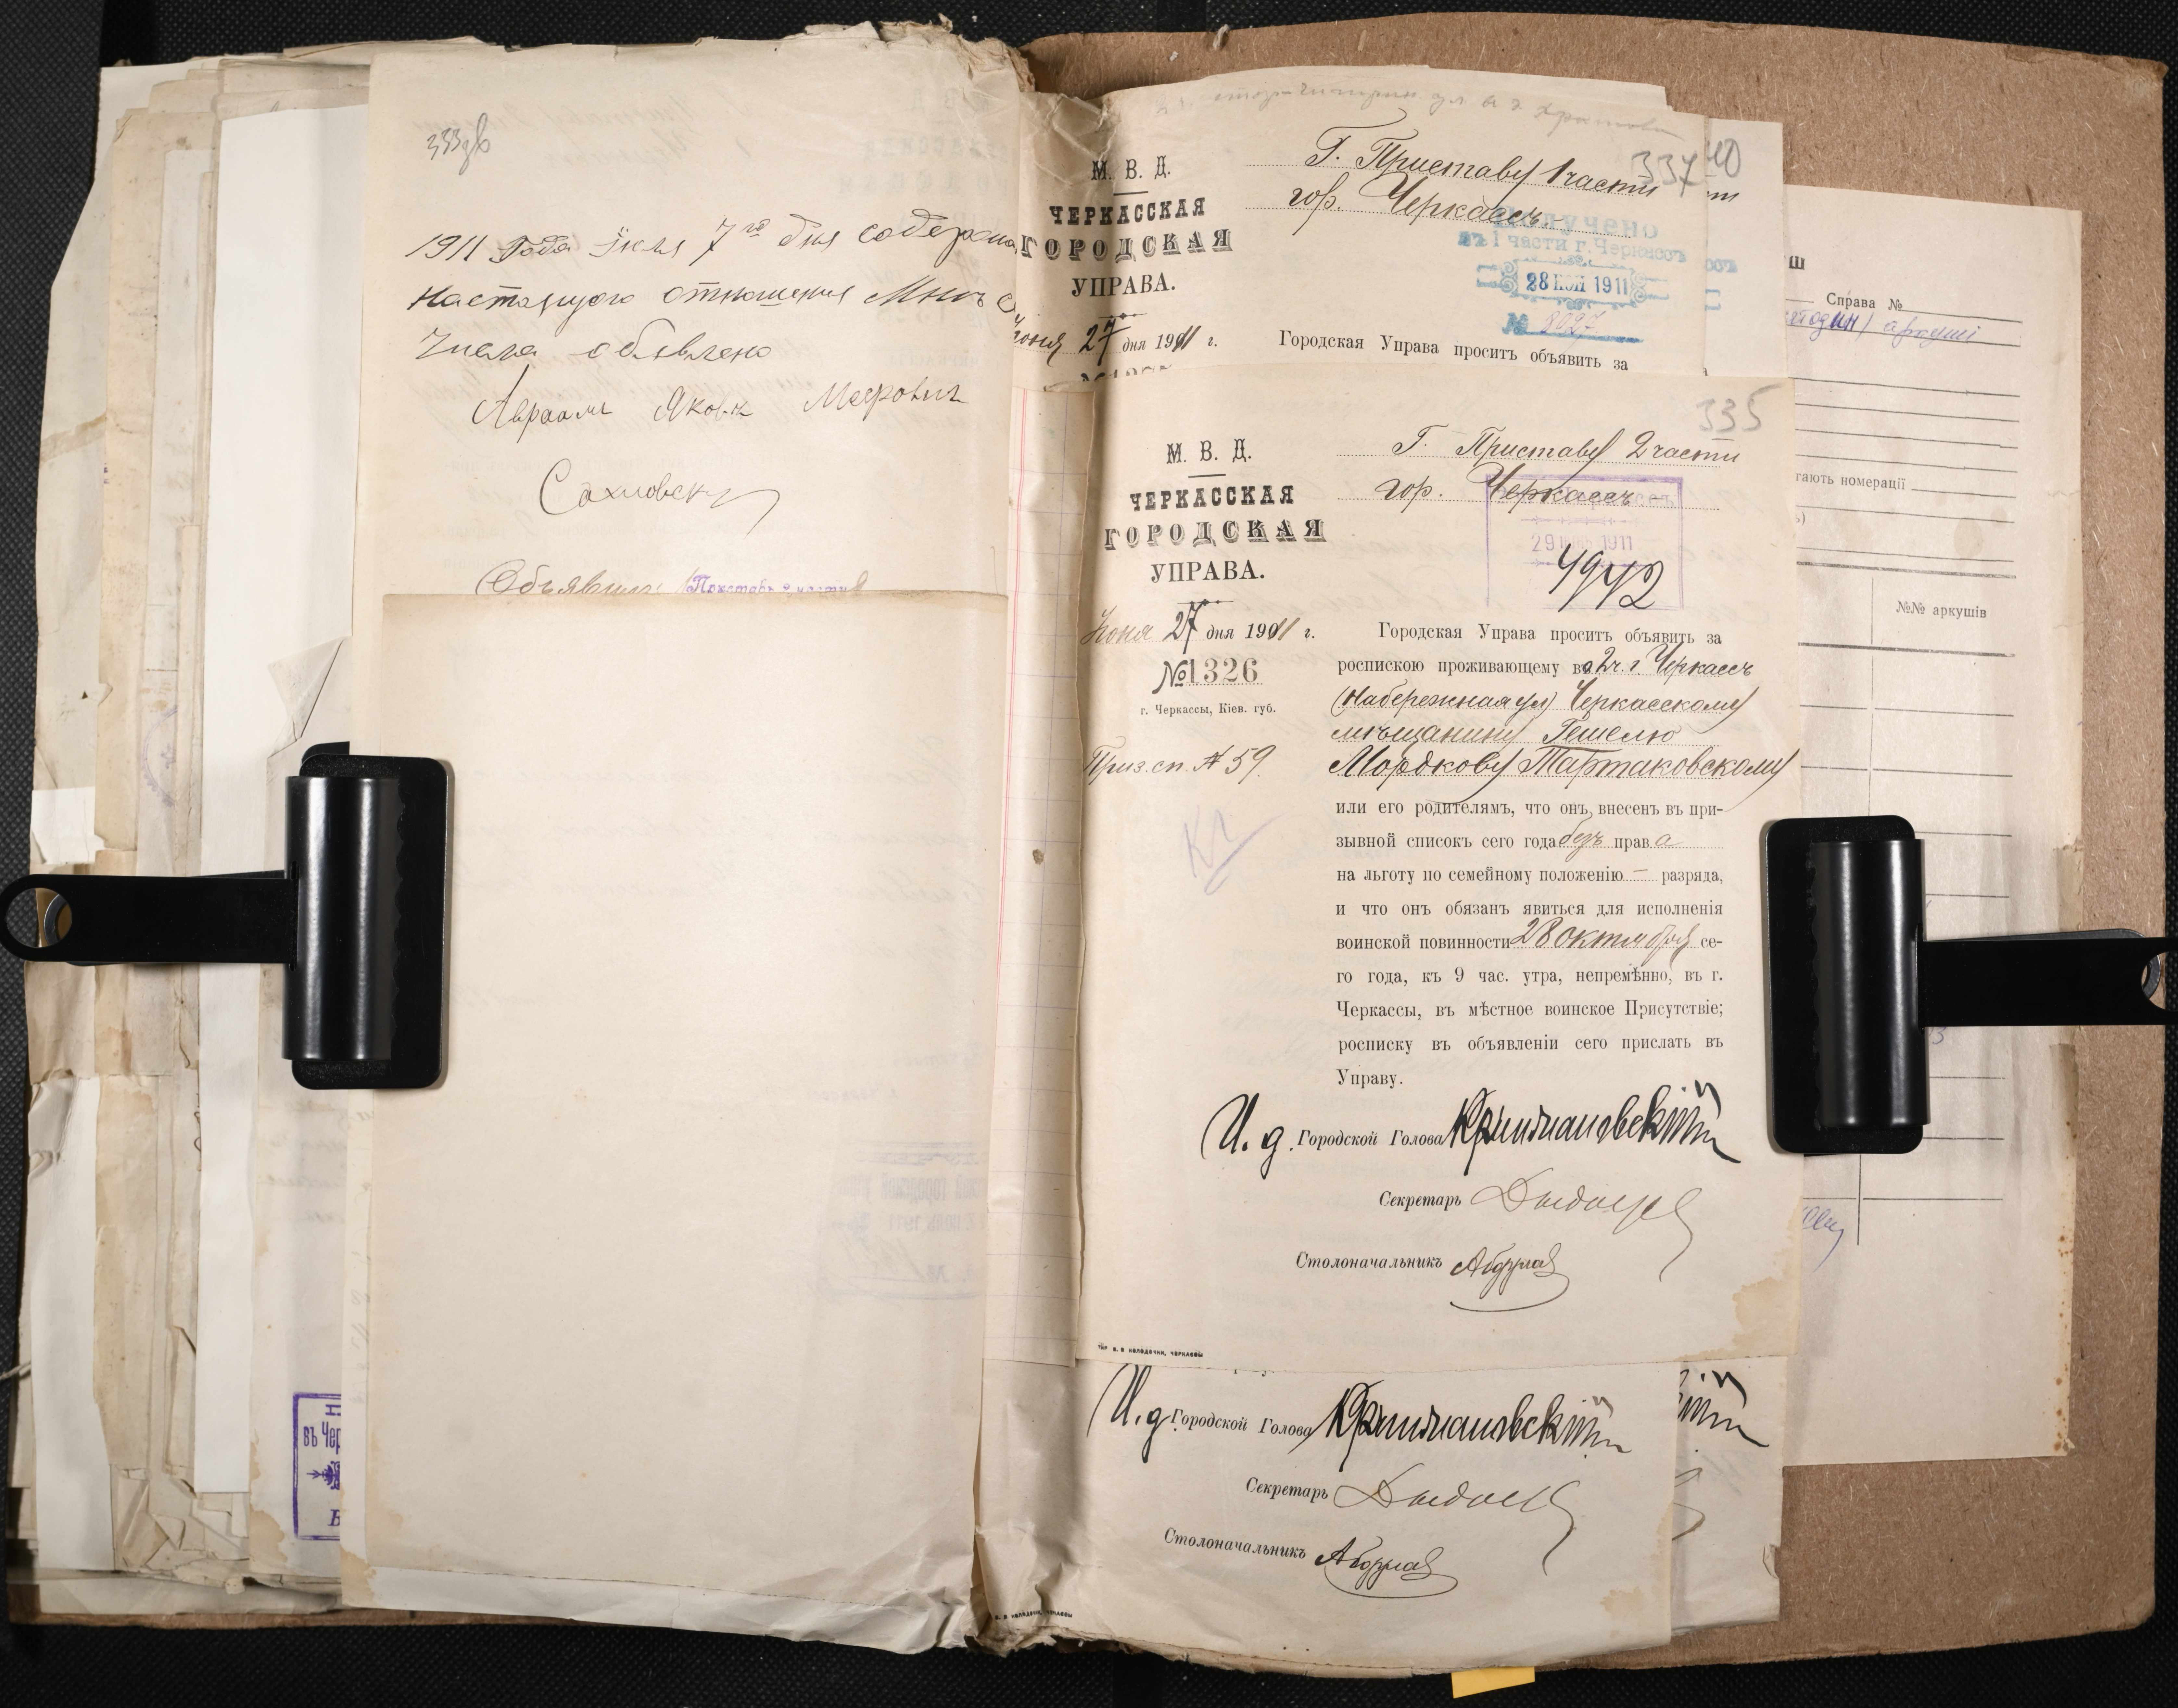 333зв
1911 года Іюля 7го дня содержа
настоящого отношенія Мнъ с
числа объявлено
Авраамъ Яковъ Меєровичъ
Сахновск
Объявилъ Приставъ 2 части
337
Г. Приставу 1 части
гор. Черкассъ
М. В. Д.
ЧЕРКАССКАЯ
ГОРОДСКАЯ
УПРАВА.
Получено
въ 1 части г. Черкассъ
28 ІЮН 1911
№ 8027
Іюня 27 дня 1911 г.
Городская Управа проситъ объявить за
40
335
М. В. Д.
ЧЕРКАССКАЯ
ГОРОДСКАЯ
УПРАВА.
Г. Приставу 2 части
гор. Черкассъ
29 1911
4942
Іюня 27 дня 1911 г.
№1326
г. Черкассы, Кіев. губ.
Приз. сп. № 59.
Кг
Городская Управа проситъ объявить за
роспискою проживающему въ 2 ч. г. Черкассъ
(Набережная ул) Черкасскому
мѣщанину Гешелю
Мордкову Тартаковскому
или его родителямъ, что онъ внесенъ въ при-
зывной списокъ сего года безъ права
на льготу по семейному положенію — разряда,
и что онъ обязанъ явиться для исполненія
воинской повинности 28 октября се-
го года, къ 9 час. утра, непремѣнно, въ г.
Черкассы, въ мѣстное воинское Присутствіе;
росписку въ объявленіи сего прислать въ
Управу.
И. д. Городской Голова
Секретарь
Столоначальникъ
ТИП В. В КОЛОДОЧКИ, ЧЕРКАССЫ
И. д Городской Голова
Секретарь
Столоначальникъ
Справа №
аркуші
гають номерації
№№ аркушів
въ Чер